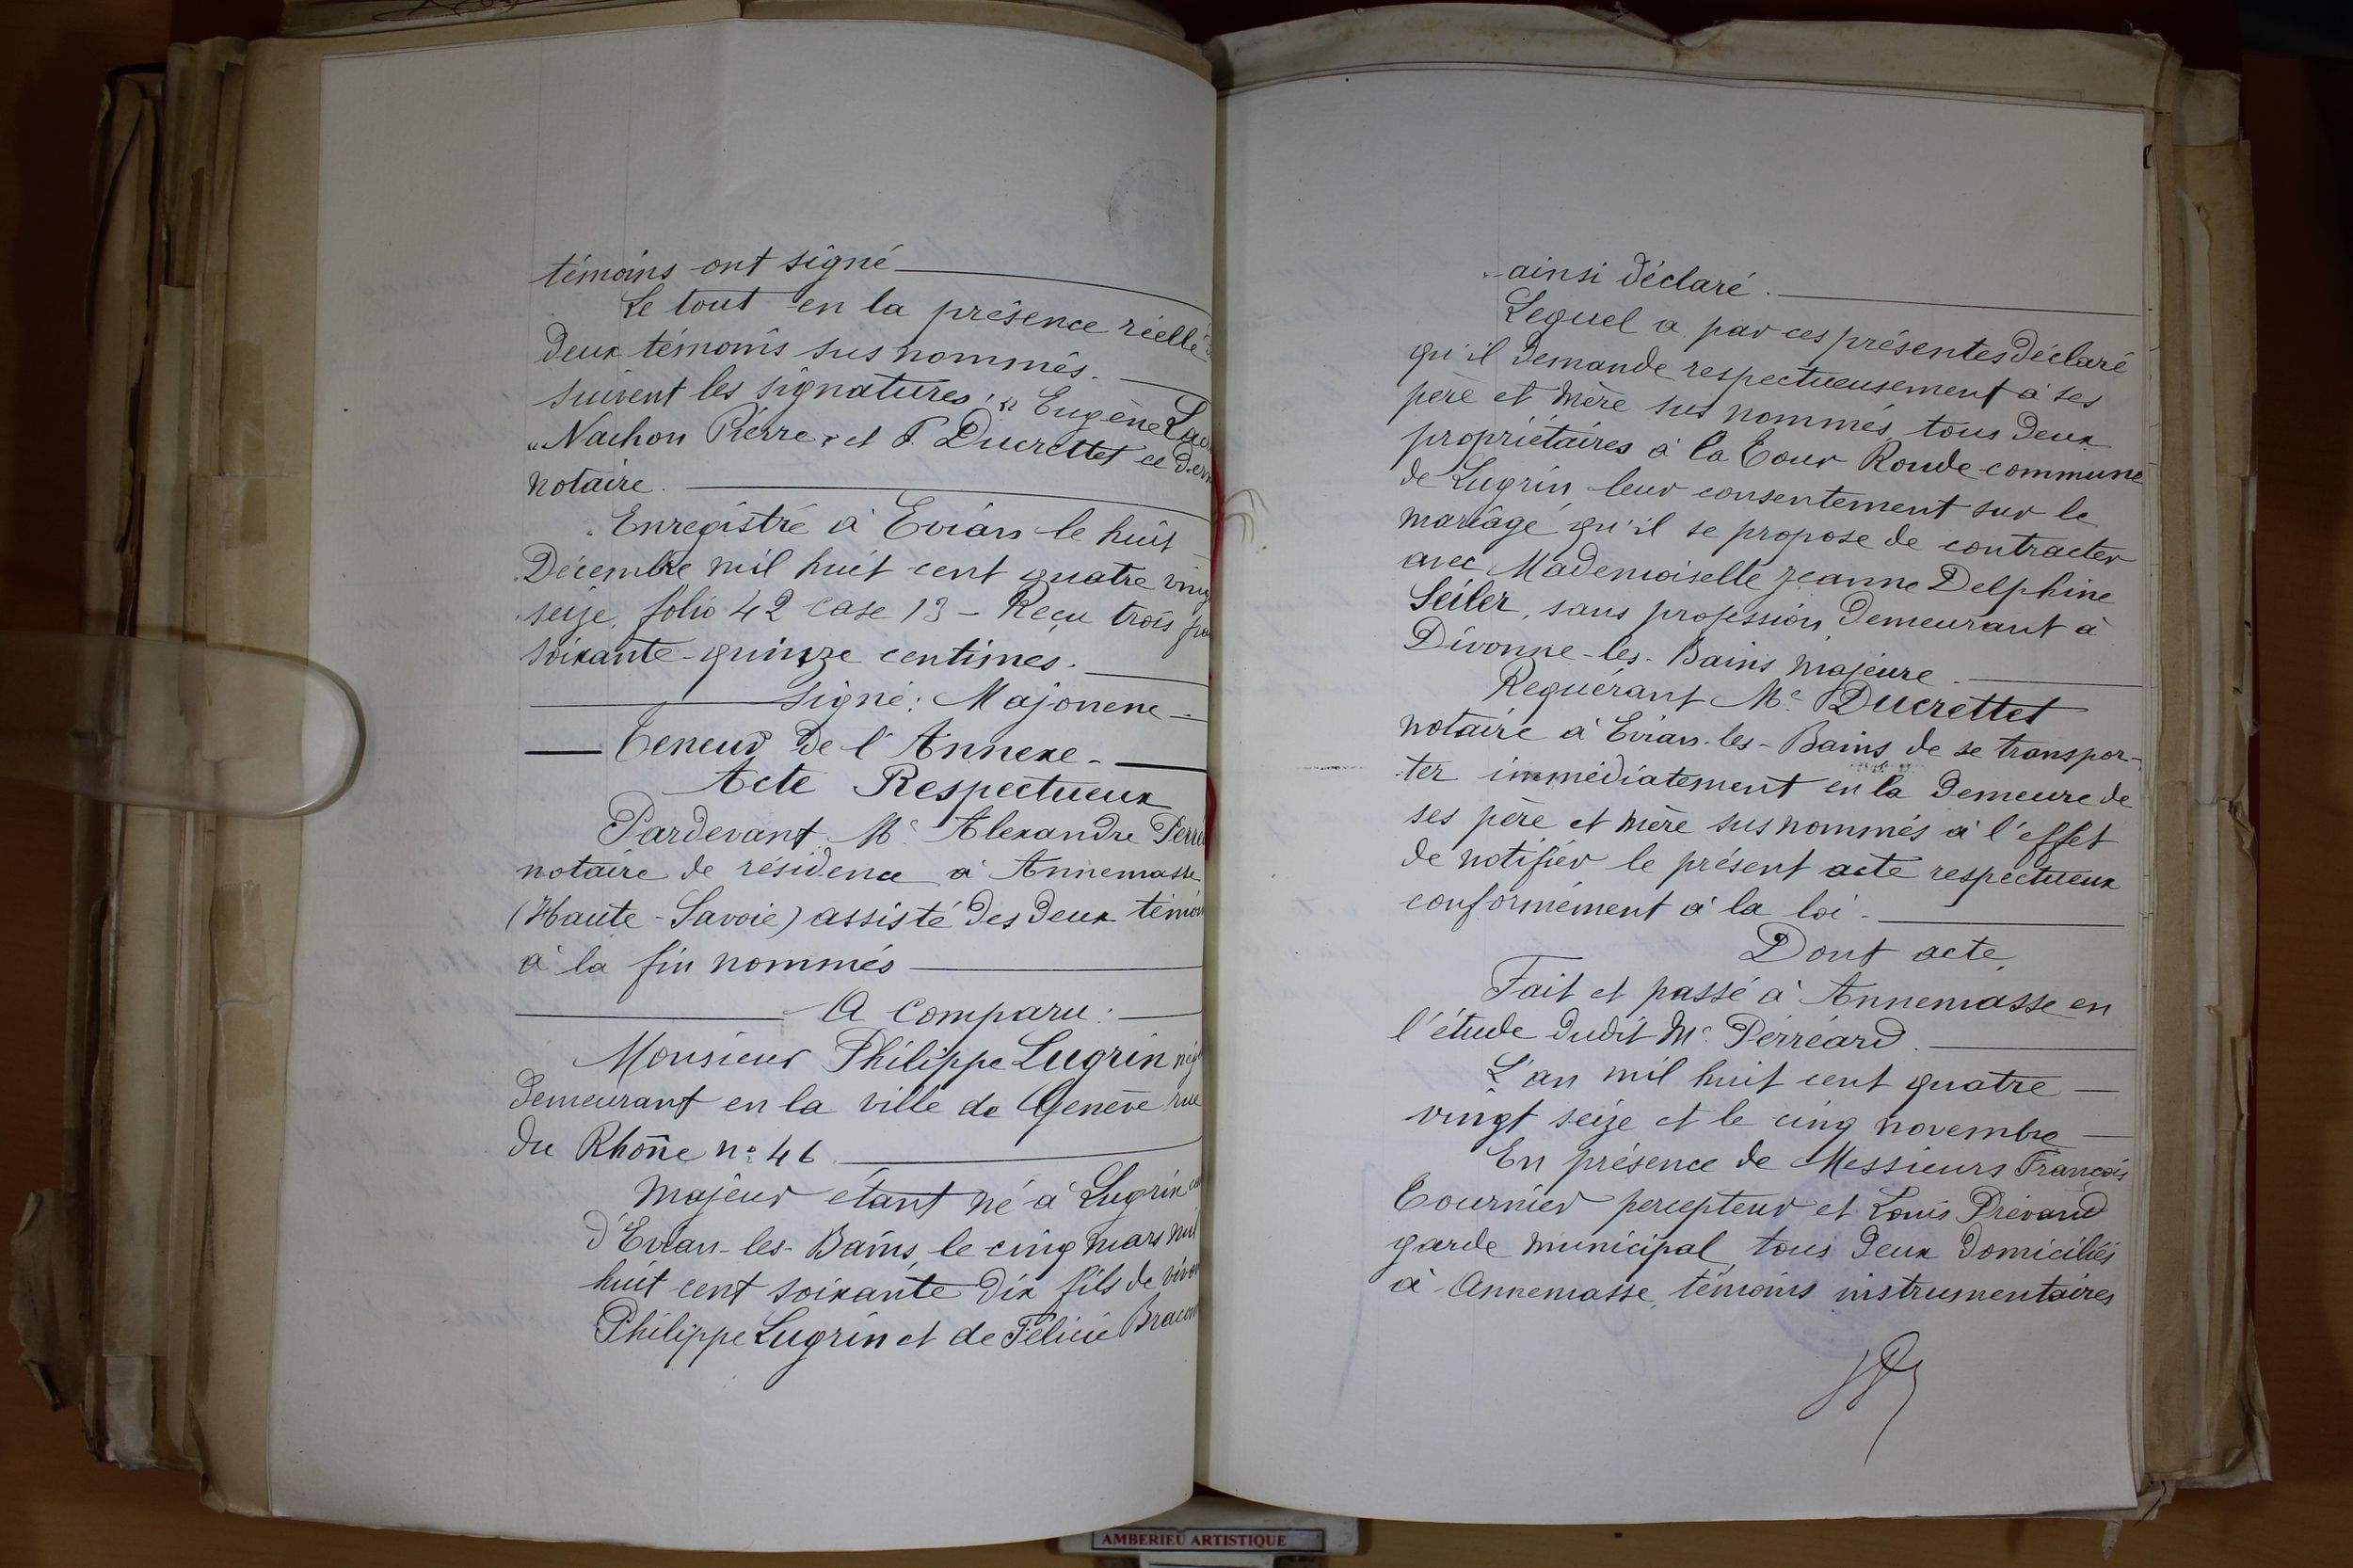 témoins ont signé
Le tout en la présence réelle
deux témoins sus nommés.
suivent les signatures: "Eugène
"Nachon Pierre, et F. Ducrettet ce
notaire.
Enregistré à Evian le huit
Décembre mil huit cent quatre
seize, folio 42 case 13 - Reçu trois
soixante-quinze centimes.
Signé: Majonene
Teneur de l'Annexe.
Acte Respectueux
Pardevant Me Alexandre
notaire de résidence à Annemasse
(Haute-Savoie) assisté des deux
à la fin nommés
A Comparu:
Monsieur Philippe Lugrin
demeurant en la ville de Genève rue
du Rhône no 46
majeur étant né à Lugrin
d'Evian-les-Bains, le cinq mars mil
huit cent soixante dix fils de
Philippe Lugrin et de Félicie
ainsi déclaré.
Lequel a par ces présentes déclaré
qu'il demande respectueusement à ses
père et mère sus nommés, tous deux
propriétaires à la Tour Ronde commune
de Lugrin leur consentement sur le
mariage qu'il se propose de contracter
avec Mademoiselle Jeanne Delphine
Seiler, sans profession, demeurant à
Divonne-les-Bains, majeure.
Requérant Me Ducrettet
notaire à Evian-les-Bains de se transpor-
ter immédiatement en la demeure de
ses père et mère sus nommés à l'effet
de notifier le présent acte respectueux
conformément à la loi.
Dont acte,
Fait et passé à Annemasse en
l'étude dudit Me Perréard.
L'an mil huit cent quatre
vingt seize et le cinq novembre
En présence de Messieurs François
Tournier percepteur et Louis Prévand
garde municipal, tous deux domiciliés
à Annemasse, témoins instrumentaires
AMBERIEU ARTISTIQUE